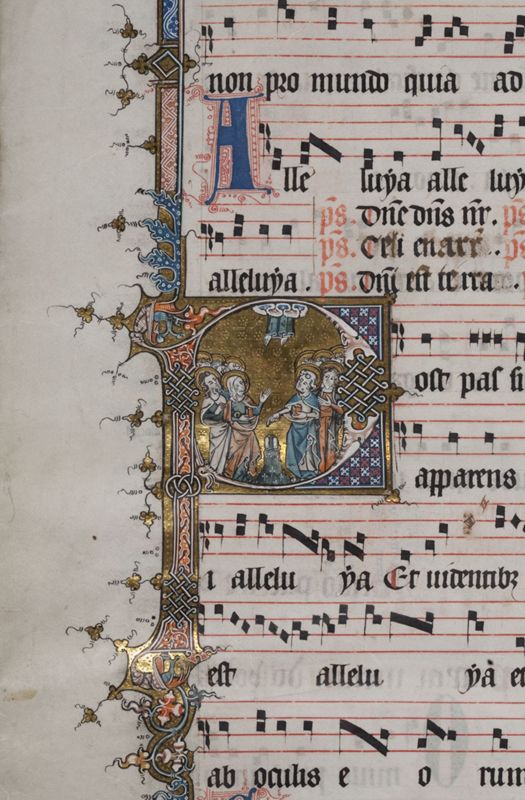 non pro mundo quia ad
Alle luya alle luy
ps. Dne dns nr. ps.
ps. Celi enarr. ps.
alleluya. ps. Dni est terra.
Post pas si
apparens
i allelu ya Et uidentibz
est allelu ya et
ab oculis e o rum